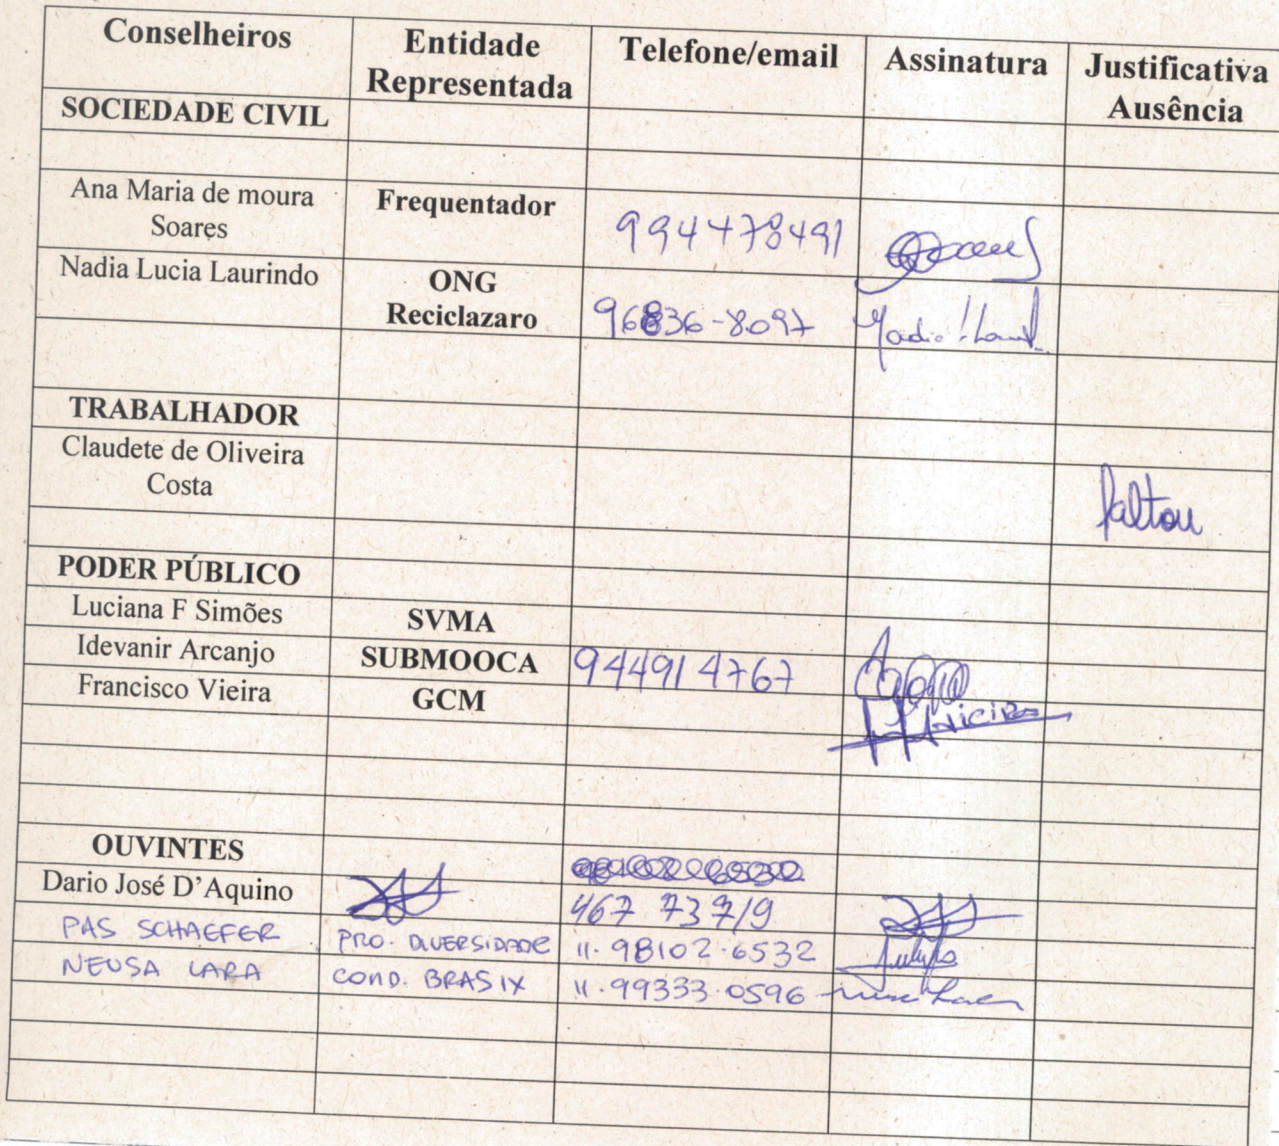 Conselheiros Entidade Representada Telefone/email Assinatura Justificativa Ausência
SOCIEDADE CIVIL
Ana Maria de moura Soares Frequentador 994478491
Nadia Lucia Laurindo ONG Reciclazaro 96836-8097
TRABALHADOR
Claudete de Oliveira Costa faltou
PODER PÚBLICO
Luciana F Simões SVMA
Idevanir Arcanjo SUBMOOCA 944914767
Francisco Vieira GCM Vieira
OUVINTES
Dario José D'Aquino 467 737/9
PAS SCHAEFER PRO. DIVERSIDADE 11.98102.6532
NEUSA LARA COND. BRAS IX 11.99333.0596